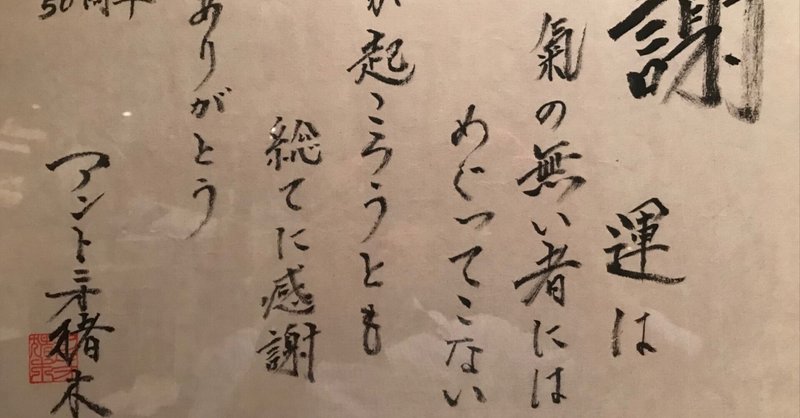 謝
運は
氣の無い者には
めぐってこない
が起ころうとも
総てに感謝
ありがとう
50周年
アントニオ猪木